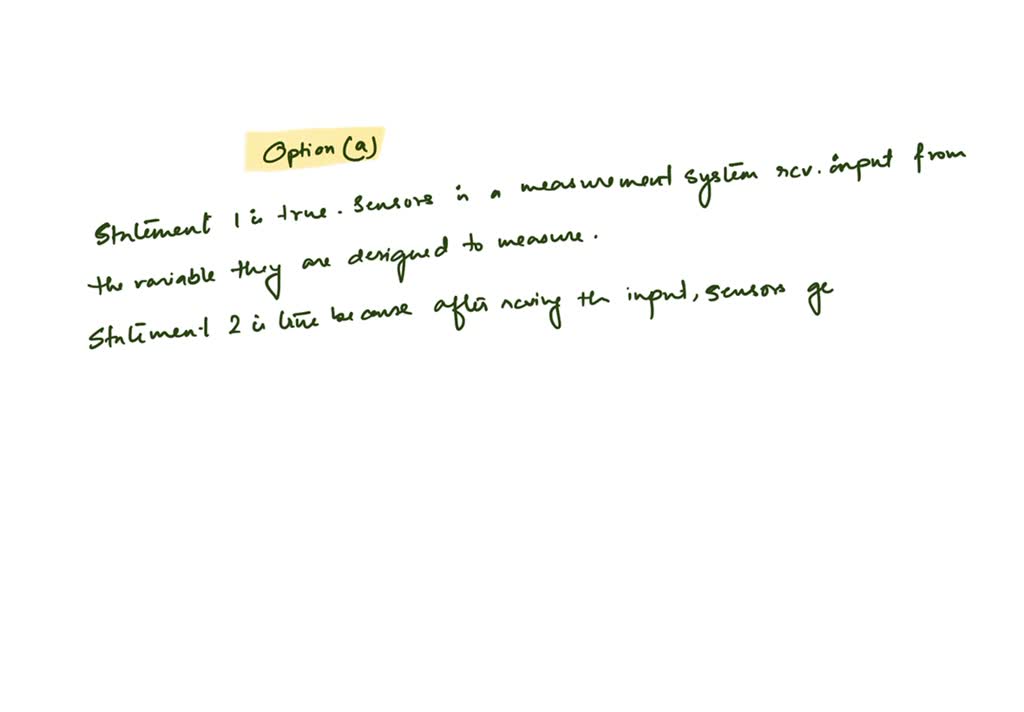 Option (a)
Statement 1 is true. Sensors in a measurement system rcv. input from
the variable they are designed to measure.
Statement 2 is true because after rcving th input, sensors ge